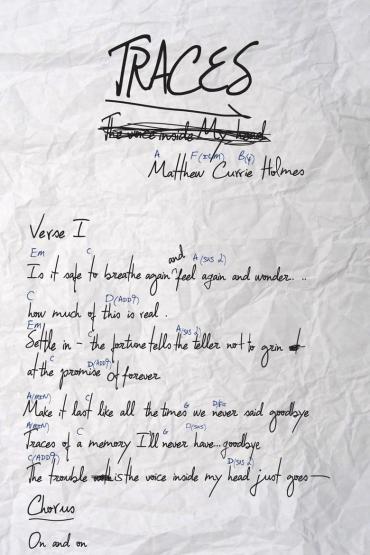 TRACES
The voice inside My head
A F(#m) B(4)
Matthew Currie Holmes
Verse I
Em C and A(sus 2)
Is it safe to breathe again feel again and wonder. . .
C D(ADD9)
how much of this is real .
Em C A(sus 2)
Settle in - the fortune tells the teller not to grin
C D(ADD9)
at the promise of forever
A(MIN) C G D/F#
Make it last like all the times we never said goodbye
A(MIN) C G D(SUS)
Traces of a memory I'll never have... goodbye
C(ADD9) D(SUS 2)
The trouble is the voice inside my head just goes—
Chorus
On and on